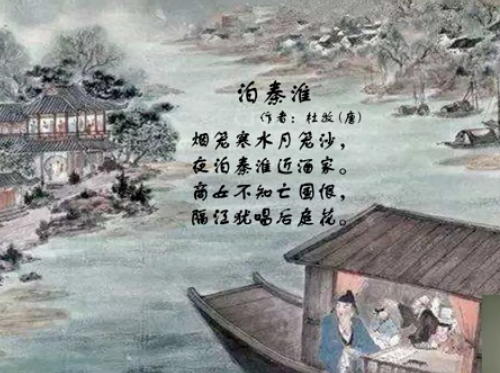 泊秦淮
作者：杜牧(唐)
烟笼寒水月笼沙，
夜泊秦淮近酒家。
商女不知亡国恨，
隔江犹唱后庭花。